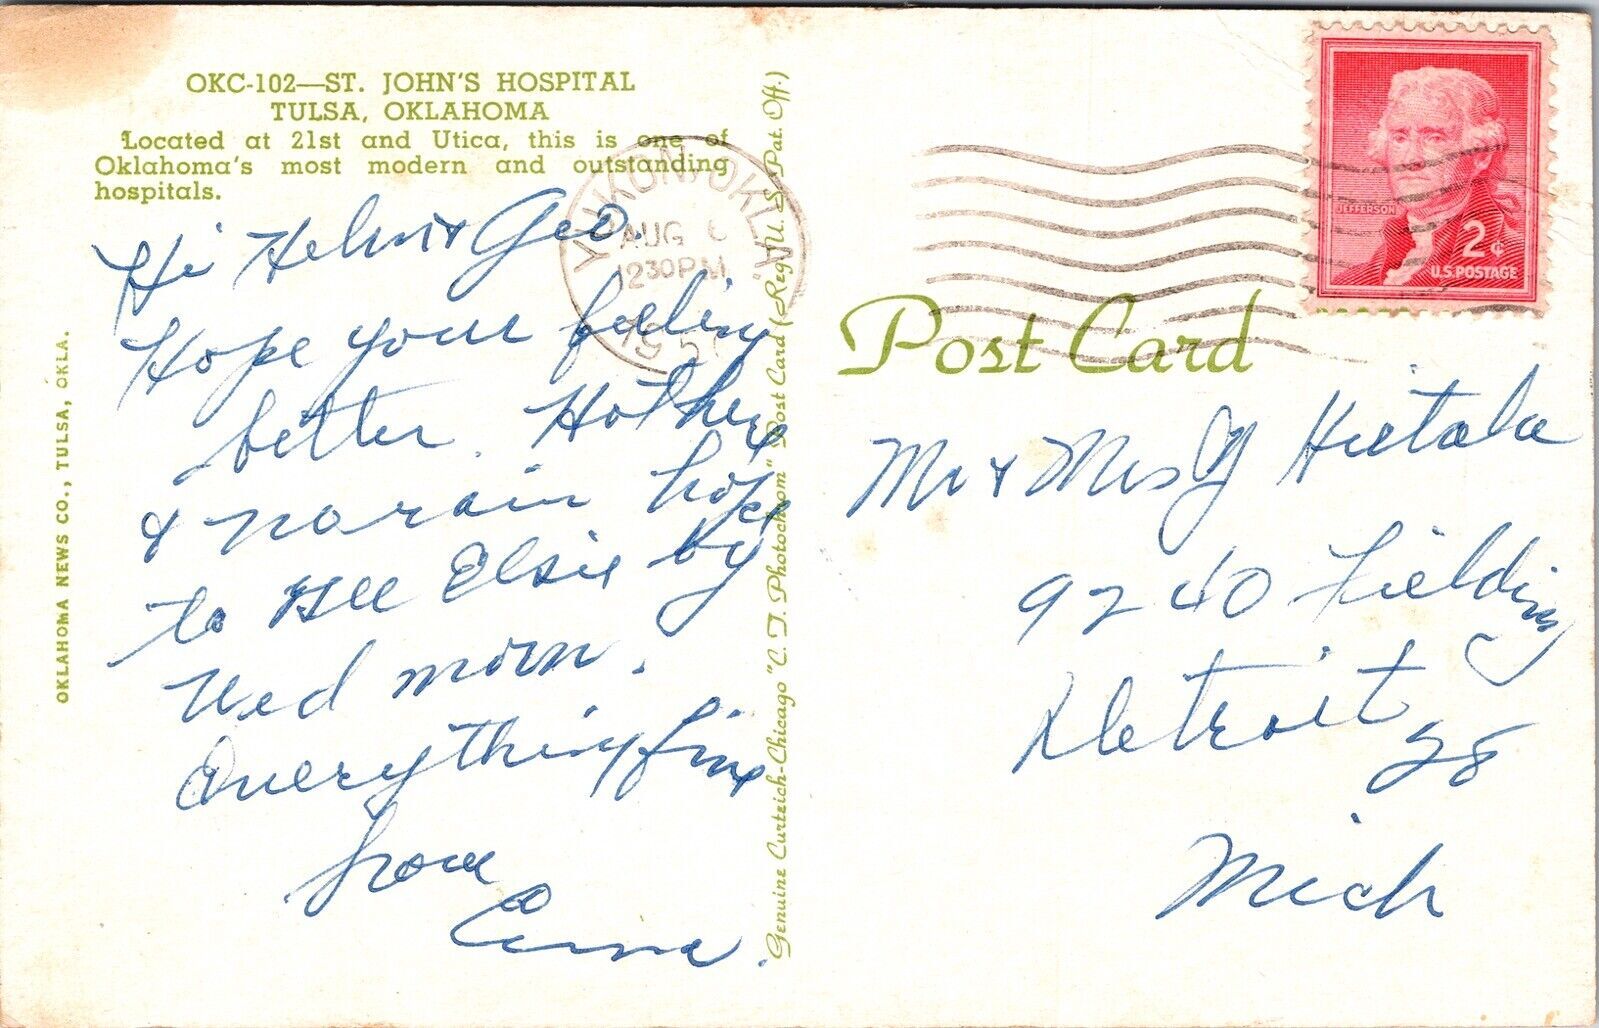 OKC-102—ST. JOHN'S HOSPITAL
TULSA, OKLAHOMA
Located at 21st and Utica, this is one of
Oklahoma's most modern and outstanding
hospitals.
Hi Helen & Geo.
Hope your feeling
better. Hot here
& no rain hope
to see Elsie by
Wed morn.
Everything fine
from
OKLAHOMA NEWS CO., TULSA, OKLA.
Genuine Curteich-Chicago "C. T. Photochrom" Post Card (Reg. U. S. Pat. Off.)
YUKON, OKLA.
AUG 6
1230 PM
195
JEFFERSON
2¢
U.S. POSTAGE
Post Card
Mr & Mrs G Hietala
9240 Fielding
Detroit 28
Mich